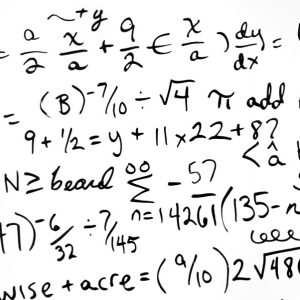 ~+y
= a/2 x/a + 9/2 ∈ x/a ) dy/dx =
= (B)^-7/10 ÷ √4 π add
9 + 1/2 = y + 11 x 22 + 8?
< â
N ≥ beard ∞ Σ n=1 - 57/4261 (135-n
47)^-6/32 ÷ 7/145
wise + acre = (9/10) 2 √48